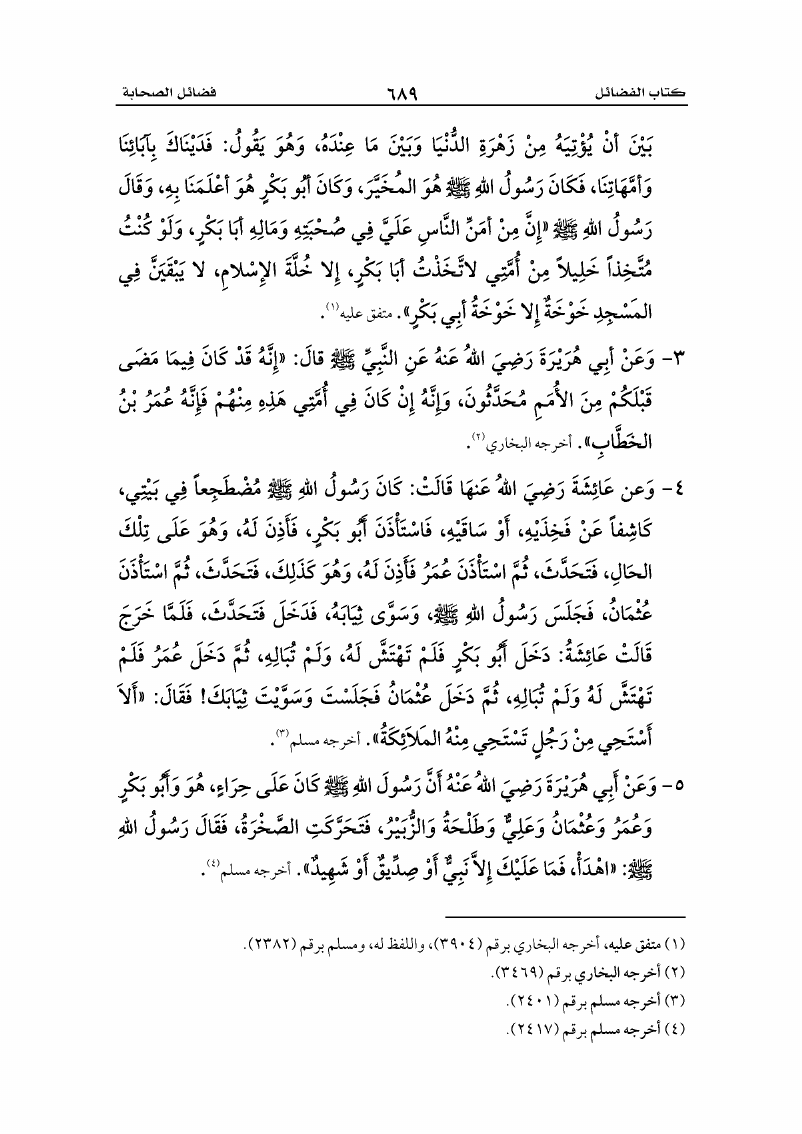 كتاب الفضائل ٦٨٩ فضائل الصحابة
بَيْنَ أنْ يُؤْتِيَهُ مِنْ زَهْرَةِ الدُّنْيَا وَبَيْنَ مَا عِنْدَهُ، وَهُوَ يَقُولُ: فَدَيْنَاكَ بِآبَائِنَا
وَأمَّهَاتِنَا، فَكَانَ رَسُولُ اللهِ ﷺ هُوَ المُخَيَّرَ، وَكَانَ أبُو بَكْرٍ هُوَ أعْلَمَنَا بِهِ، وَقَالَ
رَسُولُ اللهِ ﷺ «إنَّ مِنْ أمَنِّ النَّاسِ عَلَيَّ فِي صُحْبَتِهِ وَمَالِهِ أبَا بَكْرٍ، وَلَوْ كُنْتُ
مُتَّخِذاً خَلِيلاً مِنْ أُمَّتِي لاتَّخَذْتُ أبَا بَكْرٍ، إلا خُلَّةَ الإسْلامِ، لا يَبْقَيَنَّ فِي
المَسْجِدِ خَوْخَةٌ إلا خَوْخَةُ أبِي بَكْرٍ». متفق عليه(١).
٣- وَعَنْ أبِي هُرَيْرَةَ رَضِيَ اللهُ عَنهُ عَنِ النَّبِيِّ ﷺ قالَ: «إنَّهُ قَدْ كَانَ فِيمَا مَضَى
قَبْلَكُمْ مِنَ الأُمَمِ مُحَدَّثُونَ، وَإنَّهُ إنْ كَانَ فِي أُمَّتِي هَذِهِ مِنْهُمْ فَإنَّهُ عُمَرُ بْنُ
الخَطَّابِ». أخرجه البخاري(٢).
٤- وَعن عَائِشَةَ رَضِيَ اللهُ عَنهَا قَالَتْ: كَانَ رَسُولُ اللهِ ﷺ مُضْطَجِعاً فِي بَيْتِي،
كَاشِفاً عَنْ فَخِذَيْهِ، أَوْ سَاقَيْهِ، فَاسْتَأْذَنَ أَبُو بَكْرٍ، فَأَذِنَ لَهُ، وَهُوَ عَلَى تِلْكَ
الحَالِ، فَتَحَدَّثَ، ثُمَّ اسْتَأْذَنَ عُمَرُ فَأَذِنَ لَهُ، وَهُوَ كَذَلِكَ، فَتَحَدَّثَ، ثُمَّ اسْتَأْذَنَ
عُثْمَانُ، فَجَلَسَ رَسُولُ اللهِ ﷺ، وَسَوَّى ثِيَابَهُ، فَدَخَلَ فَتَحَدَّثَ، فَلَمَّا خَرَجَ
قَالَتْ عَائِشَةُ: دَخَلَ أَبُو بَكْرٍ فَلَمْ تَهْتَشَّ لَهُ، وَلَمْ تُبَالِهِ، ثُمَّ دَخَلَ عُمَرُ فَلَمْ
تَهْتَشَّ لَهُ وَلَمْ تُبَالِهِ، ثُمَّ دَخَلَ عُثْمَانُ فَجَلَسْتَ وَسَوَّيْتَ ثِيَابَكَ! فَقَالَ: «أَلاَ
أَسْتَحِي مِنْ رَجُلٍ تَسْتَحِي مِنْهُ المَلاَئِكَةُ». أخرجه مسلم(٣).
٥- وَعَنْ أَبِي هُرَيْرَةَ رَضِيَ اللهُ عَنْهُ أَنَّ رَسُولَ اللهِ ﷺ كَانَ عَلَى حِرَاءٍ، هُوَ وَأَبُو بَكْرٍ
وَعُمَرُ وَعُثْمَانُ وَعَلِيٌّ وَطَلْحَةُ وَالزُّبَيْرُ، فَتَحَرَّكَتِ الصَّخْرَةُ، فَقَالَ رَسُولُ اللهِ
ﷺ: «اهْدَأْ، فَمَا عَلَيْكَ إِلاَّ نَبِيٌّ أَوْ صِدِّيقٌ أَوْ شَهِيدٌ». أخرجه مسلم(٤).
(١) متفق عليه، أخرجه البخاري برقم (٣٩٠٤)، واللفظ له، ومسلم برقم (٢٣٨٢).
(٢) أخرجه البخاري برقم (٣٤٦٩).
(٣) أخرجه مسلم برقم (٢٤٠١).
(٤) أخرجه مسلم برقم (٢٤١٧).